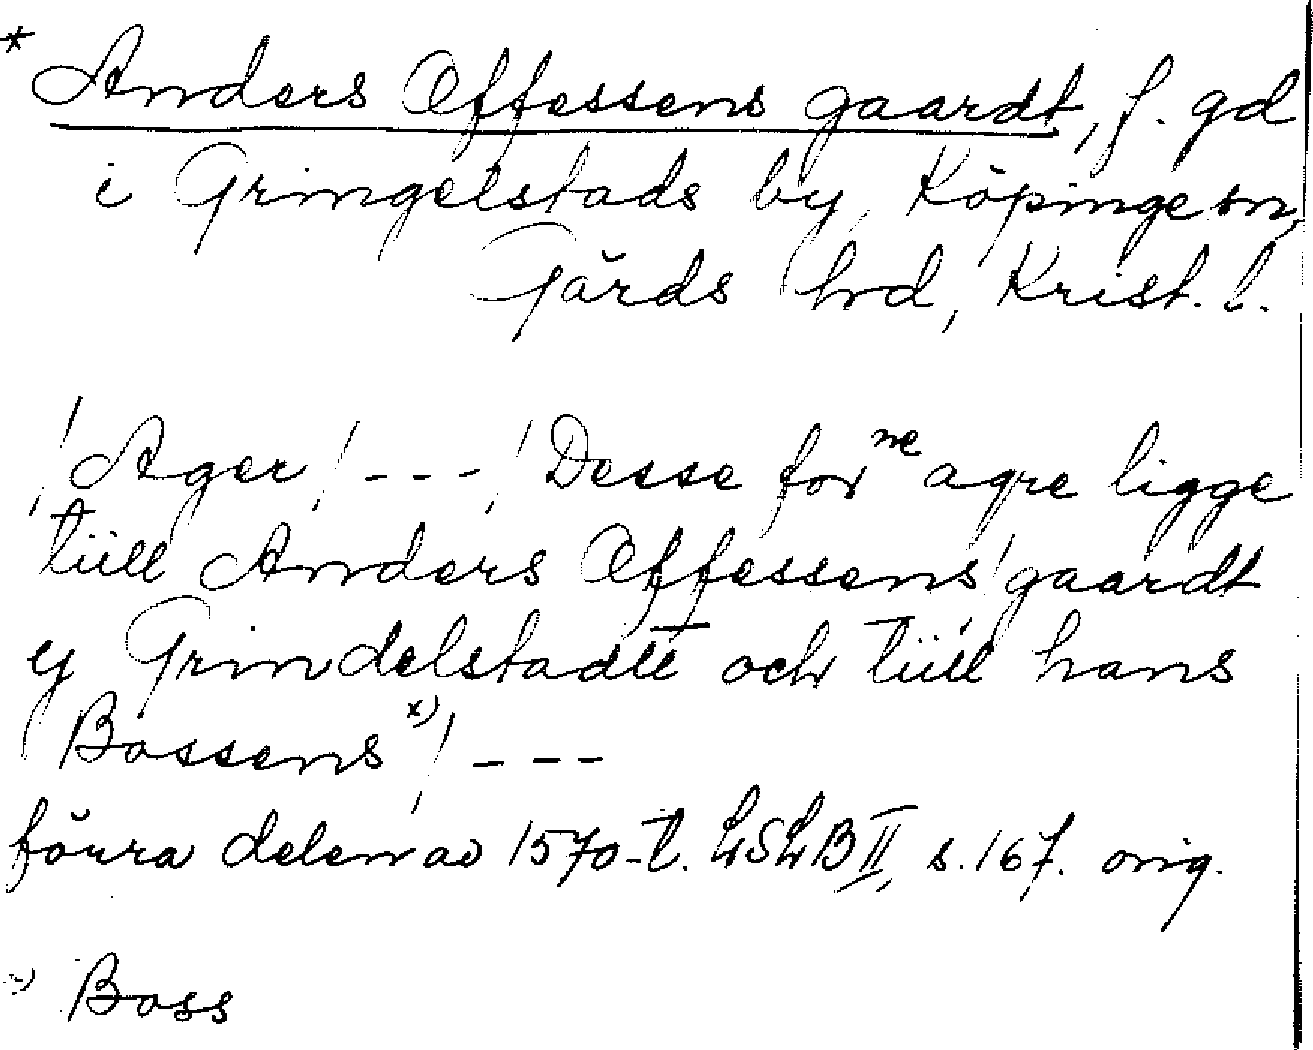 * Anders Œffessens gaardt, f. gd
i Gringelstads by, Köpinge sn,
Gärds hrd, Krist. l.
/Ager/ - - - /Desse for ne agre ligge
tiill Anders Œffessens gaardt
y Grindelstadtt och tiill hans
Bossens x) / - - -
förra delen av 1570-t. LSLB II, s. 167. orig.
x) Boss